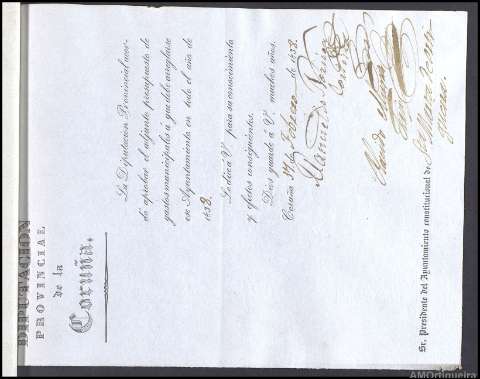 DIPUTACION
PROVINCIAL
de la
Coruña.
La Diputacion Provincial acor-
do aprobar el adjunto presupuesto de
gastos municipales a que debe arreglarse
ese Ayuntamiento en todo el año de
1838.
Lo dice á V. para su conocimiento
y efectos consiguientes.
Dios guarde á V. muchos años.
Coruña 27 de Febrero de 1838.
Sr. Presidente del Ayuntamiento constitucional de Sta. Marta de
AMOrtigueira